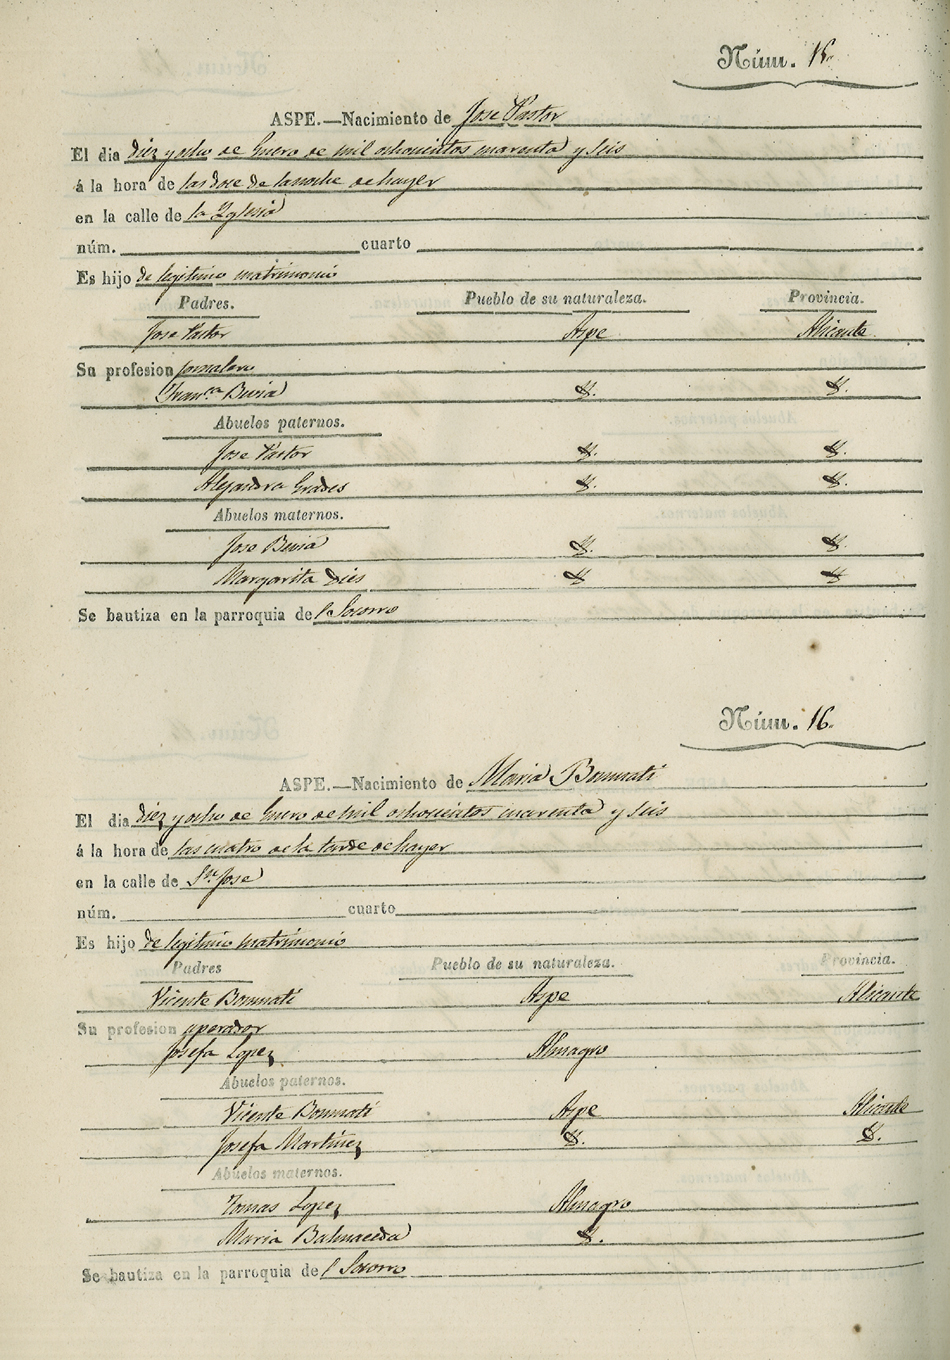 Núm. 15.
ASPE.—Nacimiento de Jose Pastor
El dia diez y ocho de Enero de mil ochocientos cuarenta y seis
á la hora de las dose de la noche de hayer
en la calle de la Yglesia
núm. cuarto
Es hijo de legitimo matrimonio
Padres. Pueblo de su naturaleza. Provincia.
Jose Pastor Aspe Alicante
Su profesion jornalero
Franca Bevia Y. Y.
Abuelos paternos.
Jose Pastor Y. Y.
Alejandra Y. Y.
Abuelos maternos.
Jose Bevia Y. Y.
Margarita Dies Y. Y.
Se bautiza en la parroquia del Socorro
Núm. 16.
ASPE.—Nacimiento de Maria Bonmati
El dia diez y ocho de Enero de mil ochocientos cuarenta y seis
á la hora de las cuatro de la tarde de hayer
en la calle de Sn. Jose
núm. cuarto
Es hijo de legitimo matrimonio
Padres Pueblo de su naturaleza. Provincia.
Vicente Bonmati Aspe Alicante
Su profesion operador
Josefa Lopez Almagro
Abuelos paternos.
Vicente Bonmati Aspe Alicante
Josefa Martinez Y. Y.
Abuelos maternos.
Tomas Lopez Almagro
Maria Balmaceda Y.
Se bautiza en la parroquia del Socorro